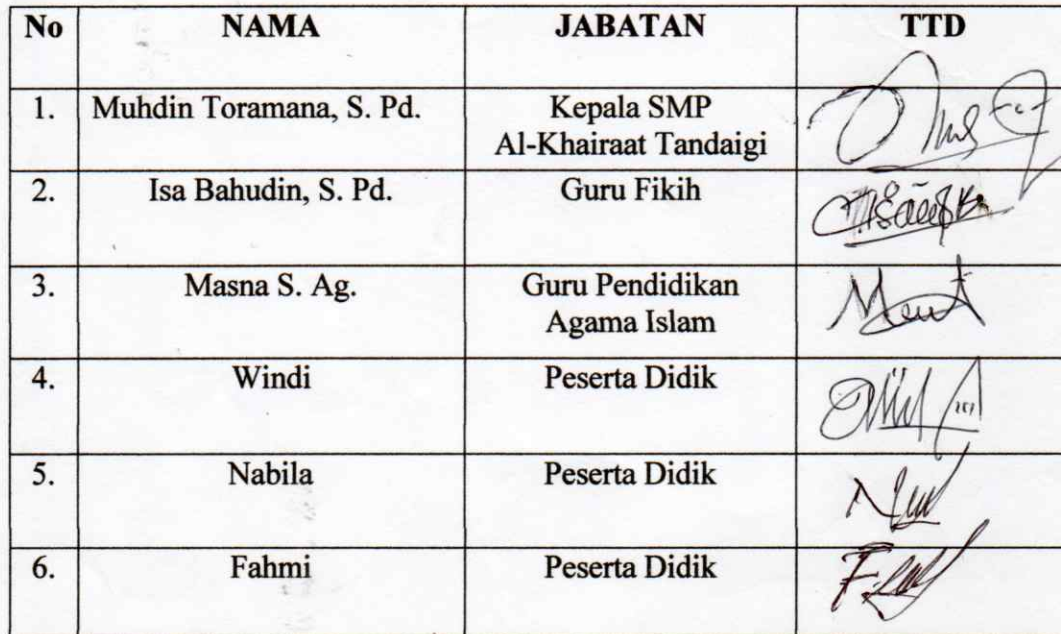 No NAMA JABATAN TTD
1. Muhdin Toramana, S. Pd. Kepala SMP
Al-Khairaat Tandaigi
2. Isa Bahudin, S. Pd. Guru Fikih
3. Masna S. Ag. Guru Pendidikan
Agama Islam
4. Windi Peserta Didik
5. Nabila Peserta Didik
6. Fahmi Peserta Didik